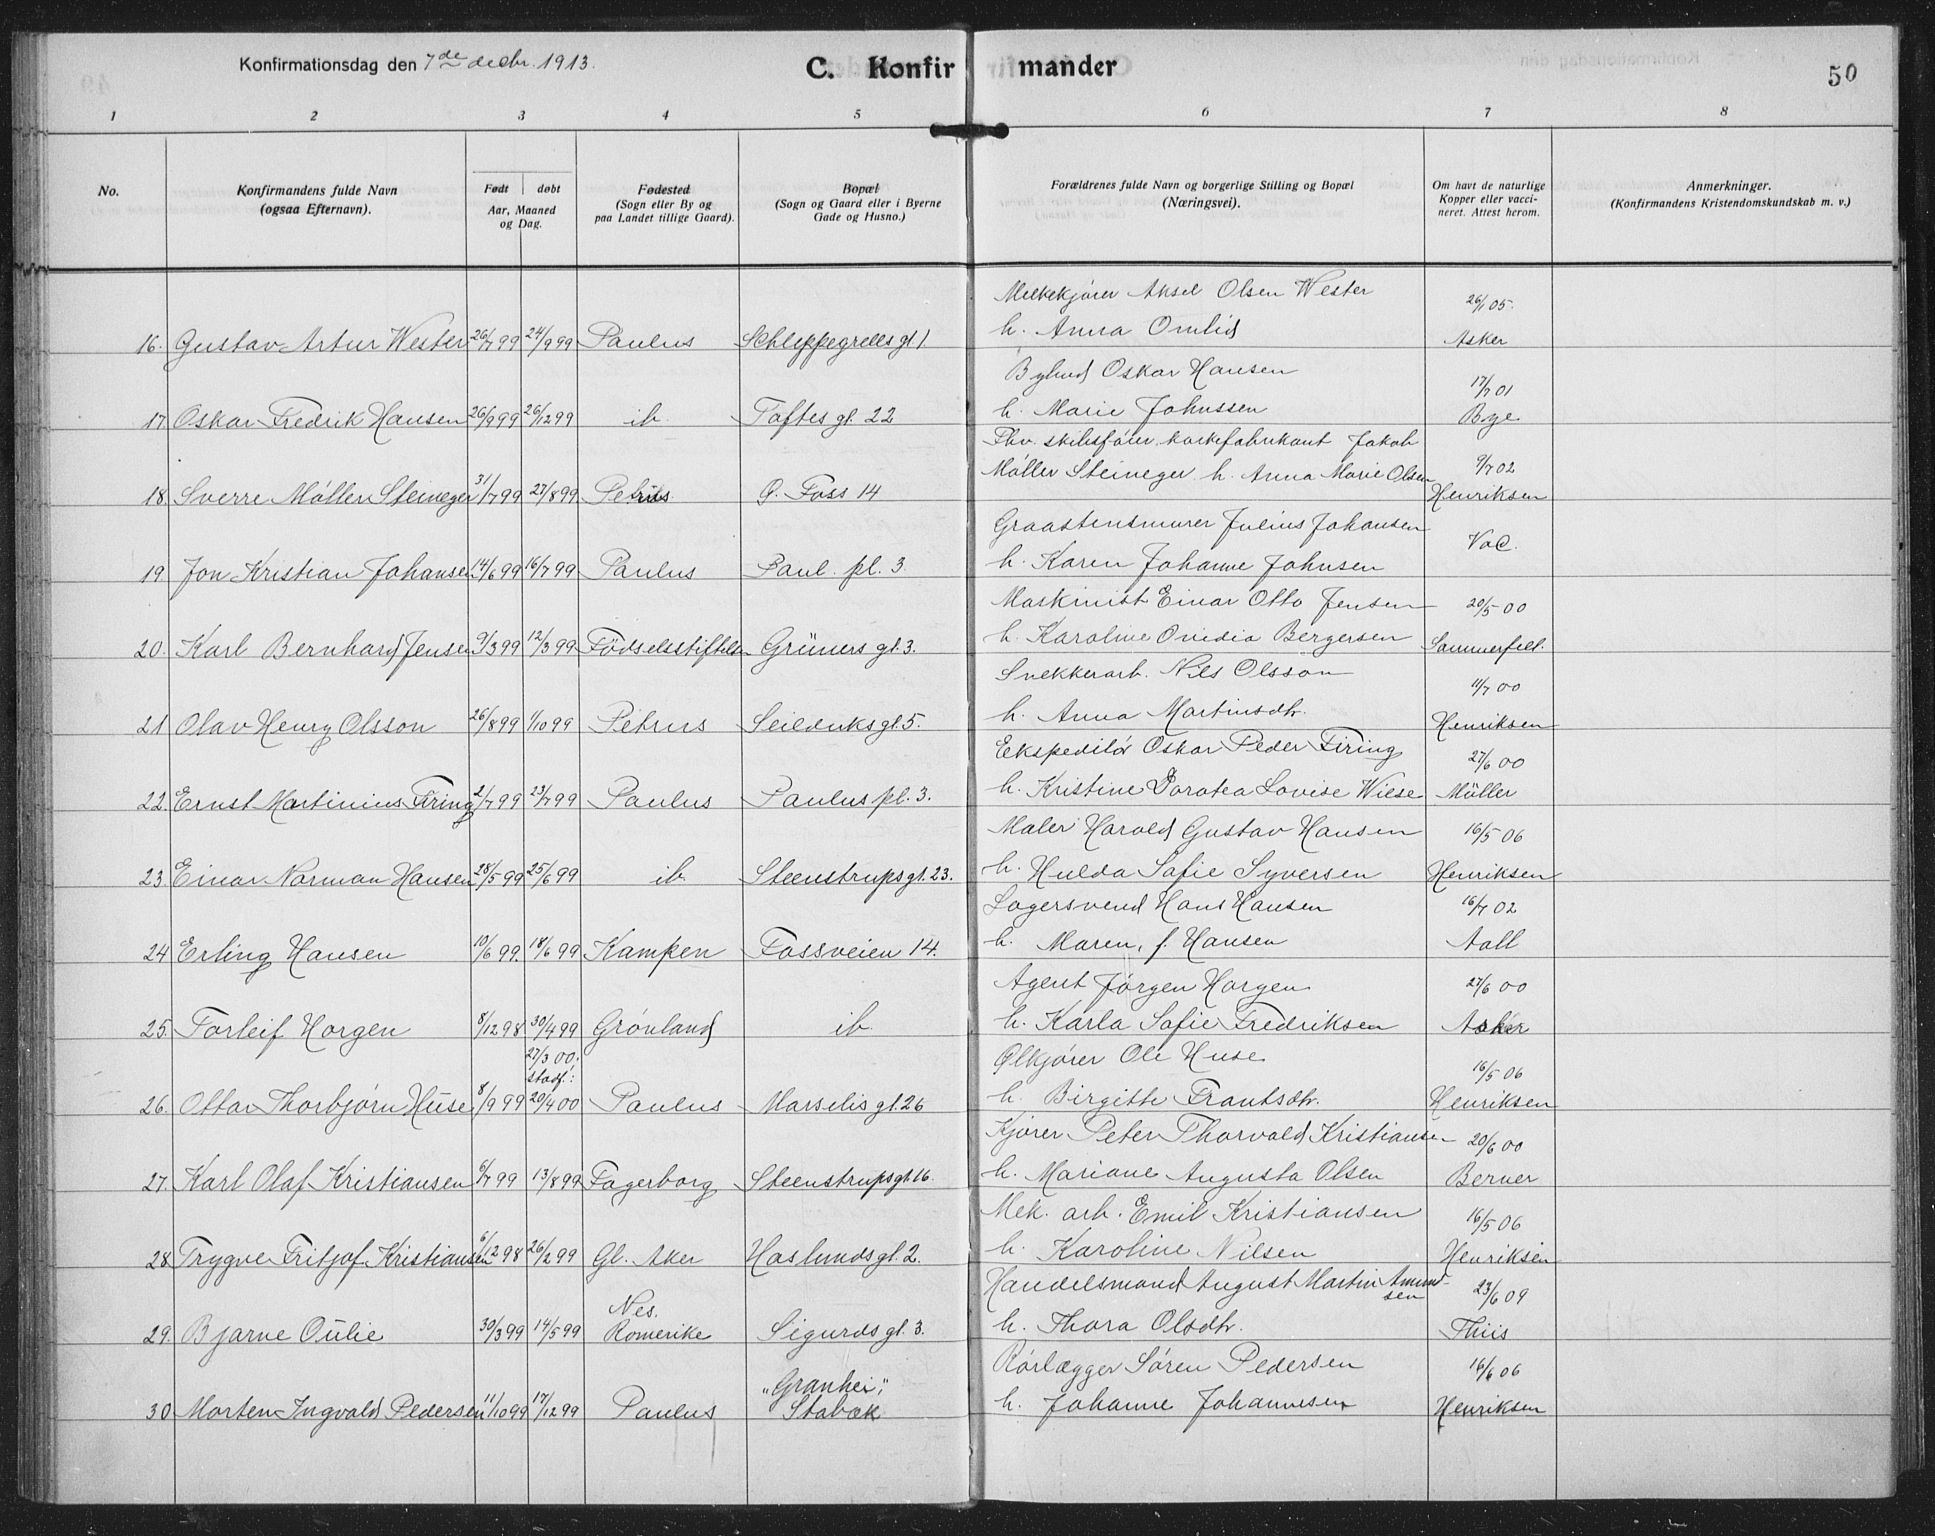 Konfirmationsdag den 7de decbr. 1913.
C. Konfirmander
50
1 2 3 4 5 6 7 8
No.
Konfirmandens fulde Navn
(ogsaa Efternavn).
Født | døbt
Aar, Maaned
og Dag.
Fødested
(Sogn eller By og
paa Landet tillige Gaard).
Bopæl
(Sogn og Gaard eller i Byerne
Gade og Husno.)
Forældrenes fulde Navn og borgerlige Stilling og Bopæl
(Næringsvei).
Om havt de naturlige
Kopper eller vacci-
neret. Attest herom.
Anmerkninger.
(Konfirmandens Kristendomskundskab m. v.)
Melkekjører Aksel Olsen Wester 26/1 05.
16. Gustav Artur Wester 26/7 99 24/9 99 Paulus Schleppegrells gt 1. h. Anna Omlid Asker
Bybud Oskar Hansen 17/7 01
17. Oskar Fredrik Hansen 26/9 99 26/12 99 ib. Toftes gt. 22 h. Marie Johnssen Bye
Fhv. skibsfører, korkefabrikant Jakob
18. Sverre Møller Steineger 31/7 99 27/8 99 Petrus G. Foss 14 Møller Steineger h. Anna Marie Olsen 9/7 02 Henriksen
Graastensmurer Julius Johansen
19. Jon Kristian Johansen 14/6 99 16/7 99 Paulus Paul. pl. 3 h. Karen Johanne Johnsen Vac.
Maskinist Einar Otto Jensen 20/5 00
20. Karl Bernhard Jensen 9/3 99 12/3 99 Fødselsstiftelsen Grüners gt. 3. h. Karoline Ovidia Bergersen Sommerfelt.
Snekkerarb. Nils Olsson 11/7 00
21. Olav Henry Olsson 26/8 99 1/10 99 Petrus Seilduksgt. 5. h. Anna Martinsdtr. Henriksen
Ekspeditør Oskar Peder Firing 27/6 00
22. Ernst Martinius Firing 2/7 99 23/7 99 Paulus Paulus pl. 3. h. Kristine Dorotea Lovise Wiese Møller
Maler Harald Gustav Hansen 16/5 06
23. Einar Norman Hansen 28/5 99 25/6 99 ib. Steenstrupsgt. 23. h. Hulda Sofie Syversen Henriksen
Lagersvend Hans Hansen 16/7 02
24 Erling Hansen 10/6 99. 18/6 99 Kampen Fossveien 14. h. Maren, f. Hansen Aall
Agent Jørgen Horgen 27/6 00
25. Torleif Horgen 8/12 98 30/4 99 Grønland ib. h. Karla Sofie Fredriksen Asker
27/3 00. Ølkjører Ole Huse
stadf.: 16/5 06
26. Ottar Thorbjørn Huse 8/9 99 20/4 00 Paulus Marselis gt. 26 h. Birgitte Frantsdtr. Henriksen
Kjører Peter Thorvald Kristiansen 20/6 00
27. Karl Olaf Kristiansen 6/7 99 13/8 99 Fagerborg Steenstrupsgt. 16. h. Mariane Augusta Olsen Berner
Mek. arb. Emil Kristiansen 16/5 06
28 Trygve Fritjof Kristiansen 6/12 98 26/2 99 Gl. Aker Haslunds gt. 2. h. Karoline Nilsen Henriksen
Handelsmand August Martin Amund-
sen 23/6 09
Nes.
29. Bjarne Oulie 30/3 99 14/5 99 Romerike Sigurds gt. 3. h. Thora Olsdtr. Thiis
Rørlægger Søren Pedersen 16/6 06
"Granhei",
30 Morten Ingvald Pedersen 11/10 99 17/12 99 Paulus Stabæk h. Johanne Johannesen Henriksen